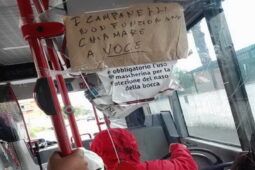 I CAMPANELLI
NON FUNZIONANO
CHIAMARE
A VOCE
è obbligatorio l'uso
mascherina per la
protezione del naso
della bocca